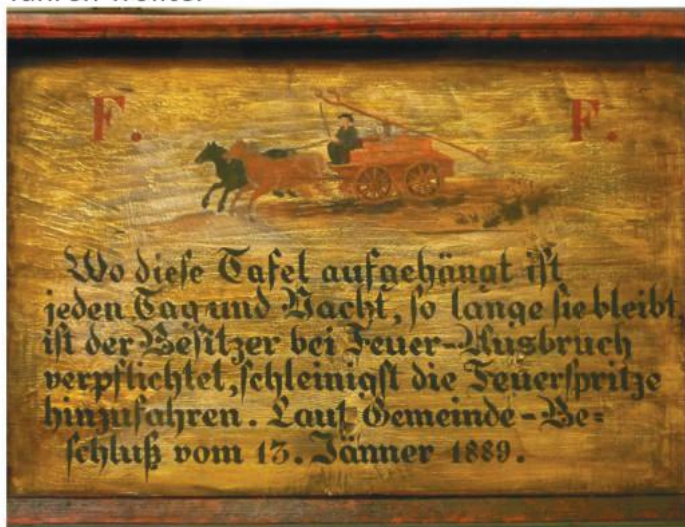 F. F.
Wo diese Tafel aufgehängt ist
jeden Tag und Nacht, so lange sie bleibt,
ist der Besitzer bei Feuer-Ausbruch
verpflichtet, schleinigst die Feuerspritze
hinzufahren. Laut Gemeinde-Be=
schluß vom 13. Jänner 1889.